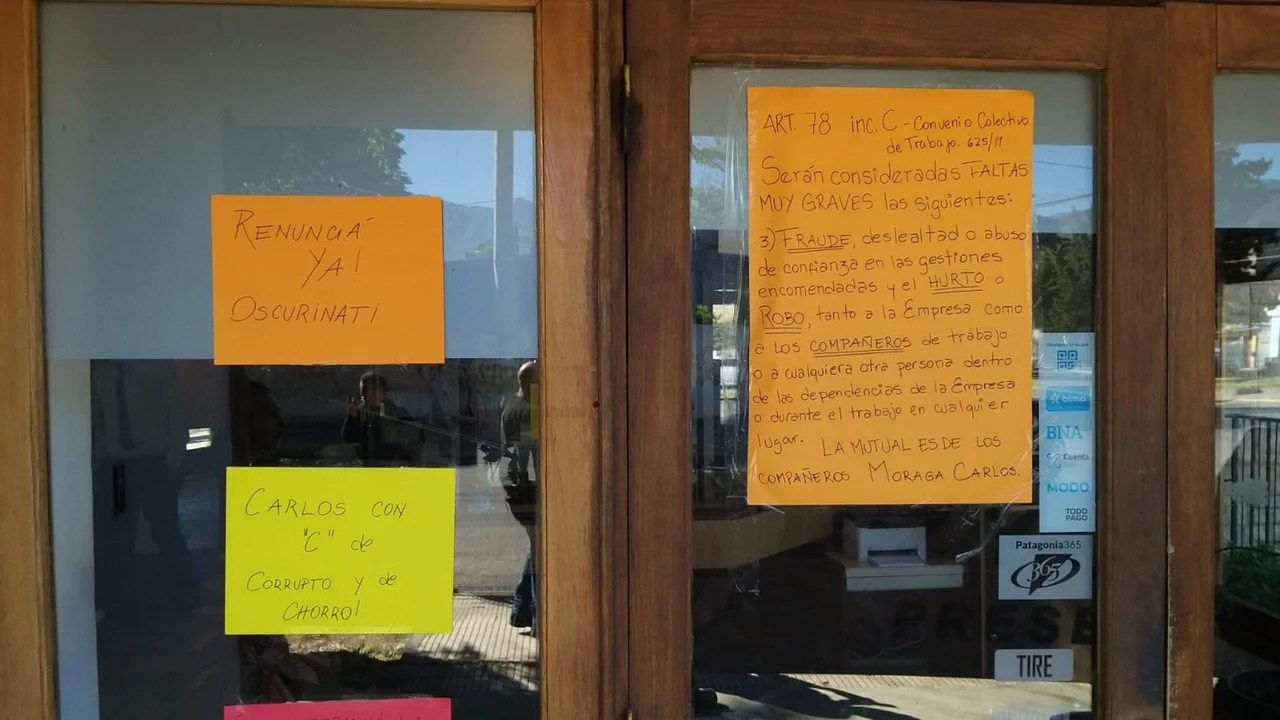 RENUNCIÁ
YA!
OSCURINATI
CARLOS CON
"C" de
CORRUPTO y de
CHORRO!
ART. 78 inc. C - Convenio Colectivo
de Trabajo. 625/11
Serán consideradas FALTAS
MUY GRAVES las siguientes:
3) FRAUDE, deslealtad o abuso
de confianza en las gestiones
encomendadas y el HURTO o
ROBO, tanto a la Empresa como
a los COMPAÑEROS de trabajo
o a cualquiera otra persona dentro
de las dependencias de la Empresa
o durante el trabajo en cualquier
lugar. LA MUTUAL ES DE LOS
COMPAÑEROS MORAGA CARLOS.
bimo
BNA
Cuenta
MODO
TODO
PAGO
Patagonia365
365
PRESE
TIRE